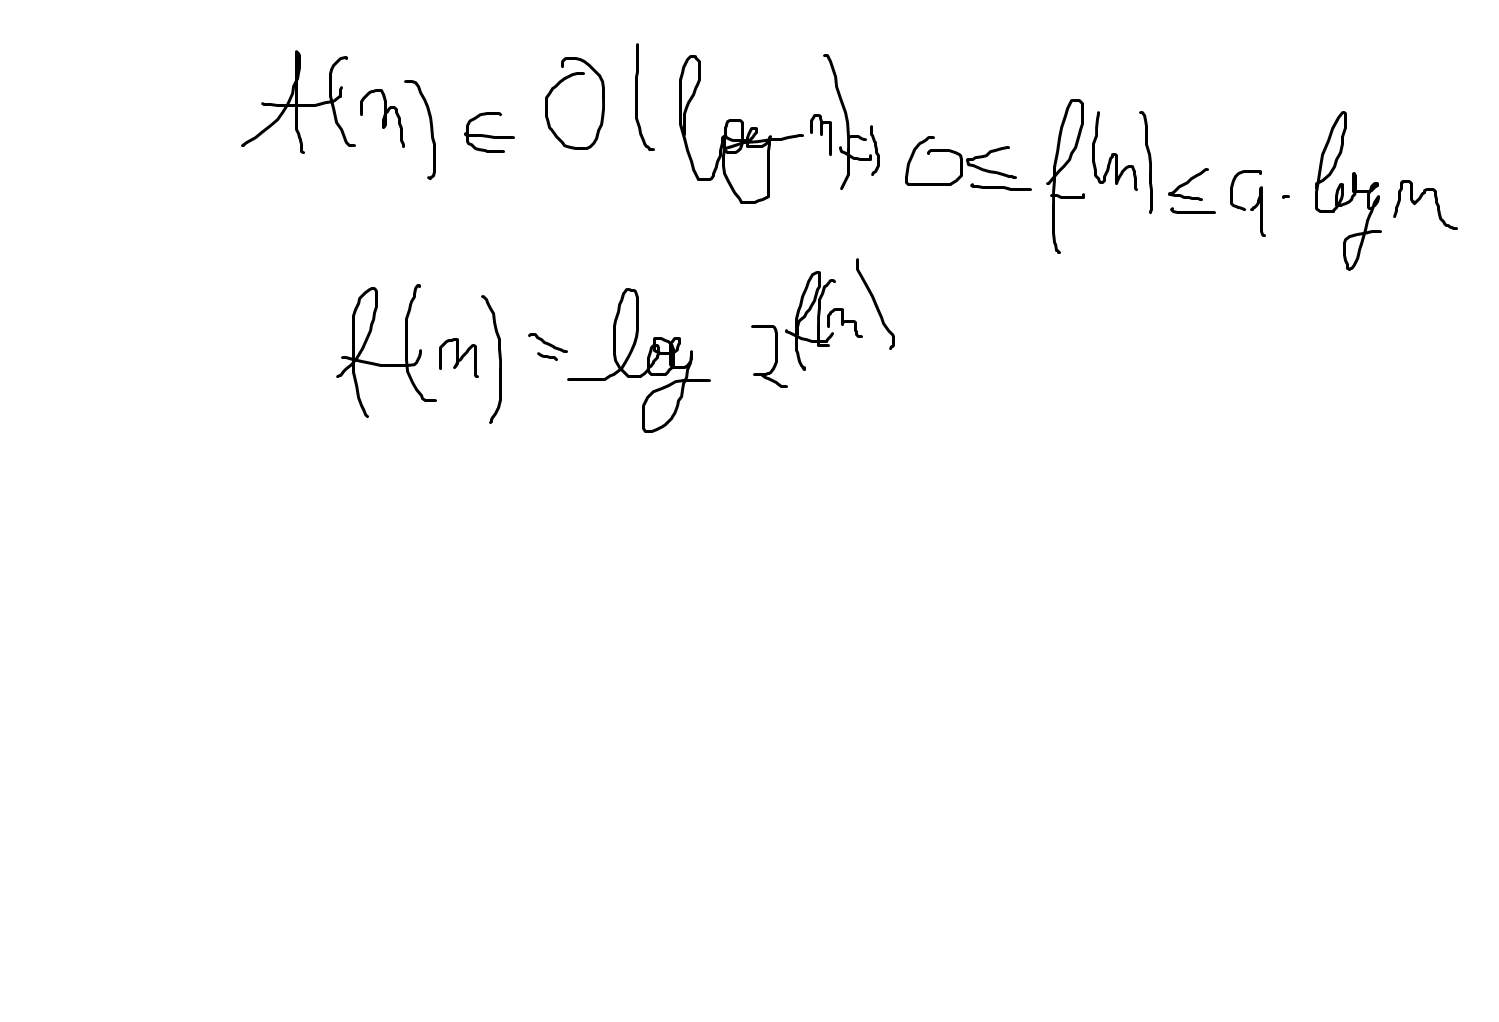 f(n) ∈ O(log n) => 0 ≤ f(n) ≤ a · log n
f(n) = log 2^f(n)